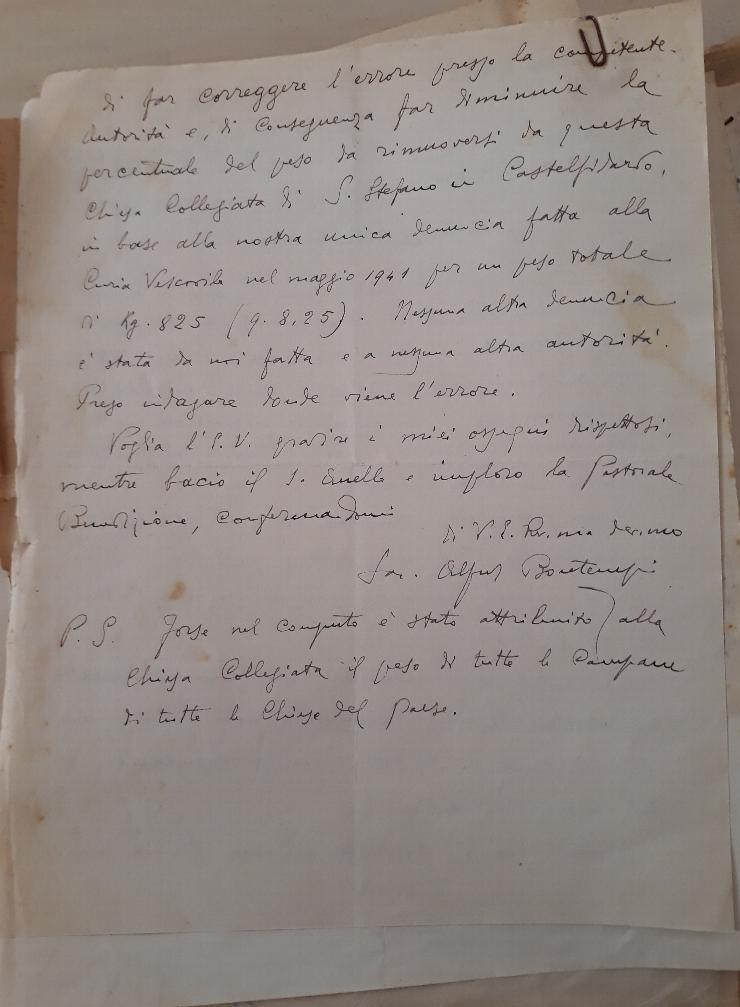 di far correggere l'errore presso la competente
Autorità e, di conseguenza far diminuire la
percentuale del peso da rimuoversi da questa
Chiesa Collegiata di S. Stefano in Castelfidardo,
in base alla nostra unica denuncia fatta alla
Curia Vescovile nel maggio 1941 per un peso totale
di Kg. 825 (q. 8,25). Nessuna altra denuncia
è stata da noi fatta e a nessuna altra autorità.
Prego indagare donde viene l'errore.
Voglia l'E. V. gradire i miei ossequi rispettosi,
mentre bacio il S. Anello e imploro la Pastorale
Benedizione, confermandomi
di V. E. Rev.ma dev.mo
Sac. Bontempi
P. S. Forse nel computo è stato attribuito alla
Chiesa Collegiata il peso di tutte le Campane
di tutte le Chiese del paese.